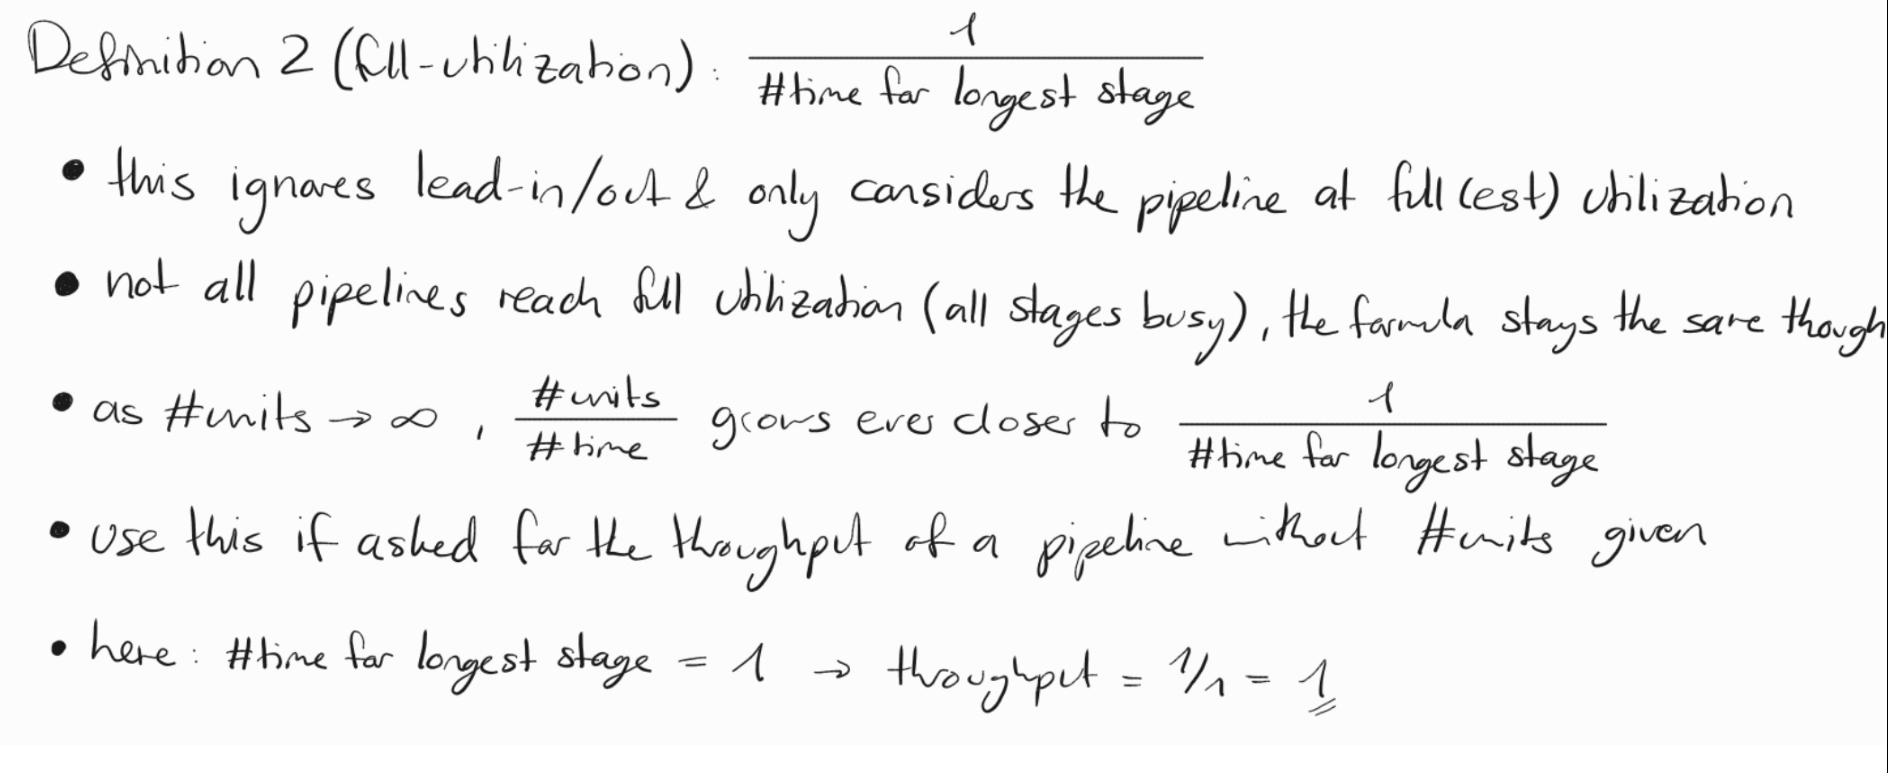 Definition 2 (full-utilization): 1 / #time for longest stage
• this ignores lead-in/out & only considers the pipeline at full(est) utilization
• not all pipelines reach full utilization (all stages busy), the formula stays the same though
• as #units → ∞, #units / #time grows ever closer to 1 / #time for longest stage
• use this if asked for the throughput of a pipeline without #units given
• here: #time for longest stage = 1 → throughput = 1/1 = 1